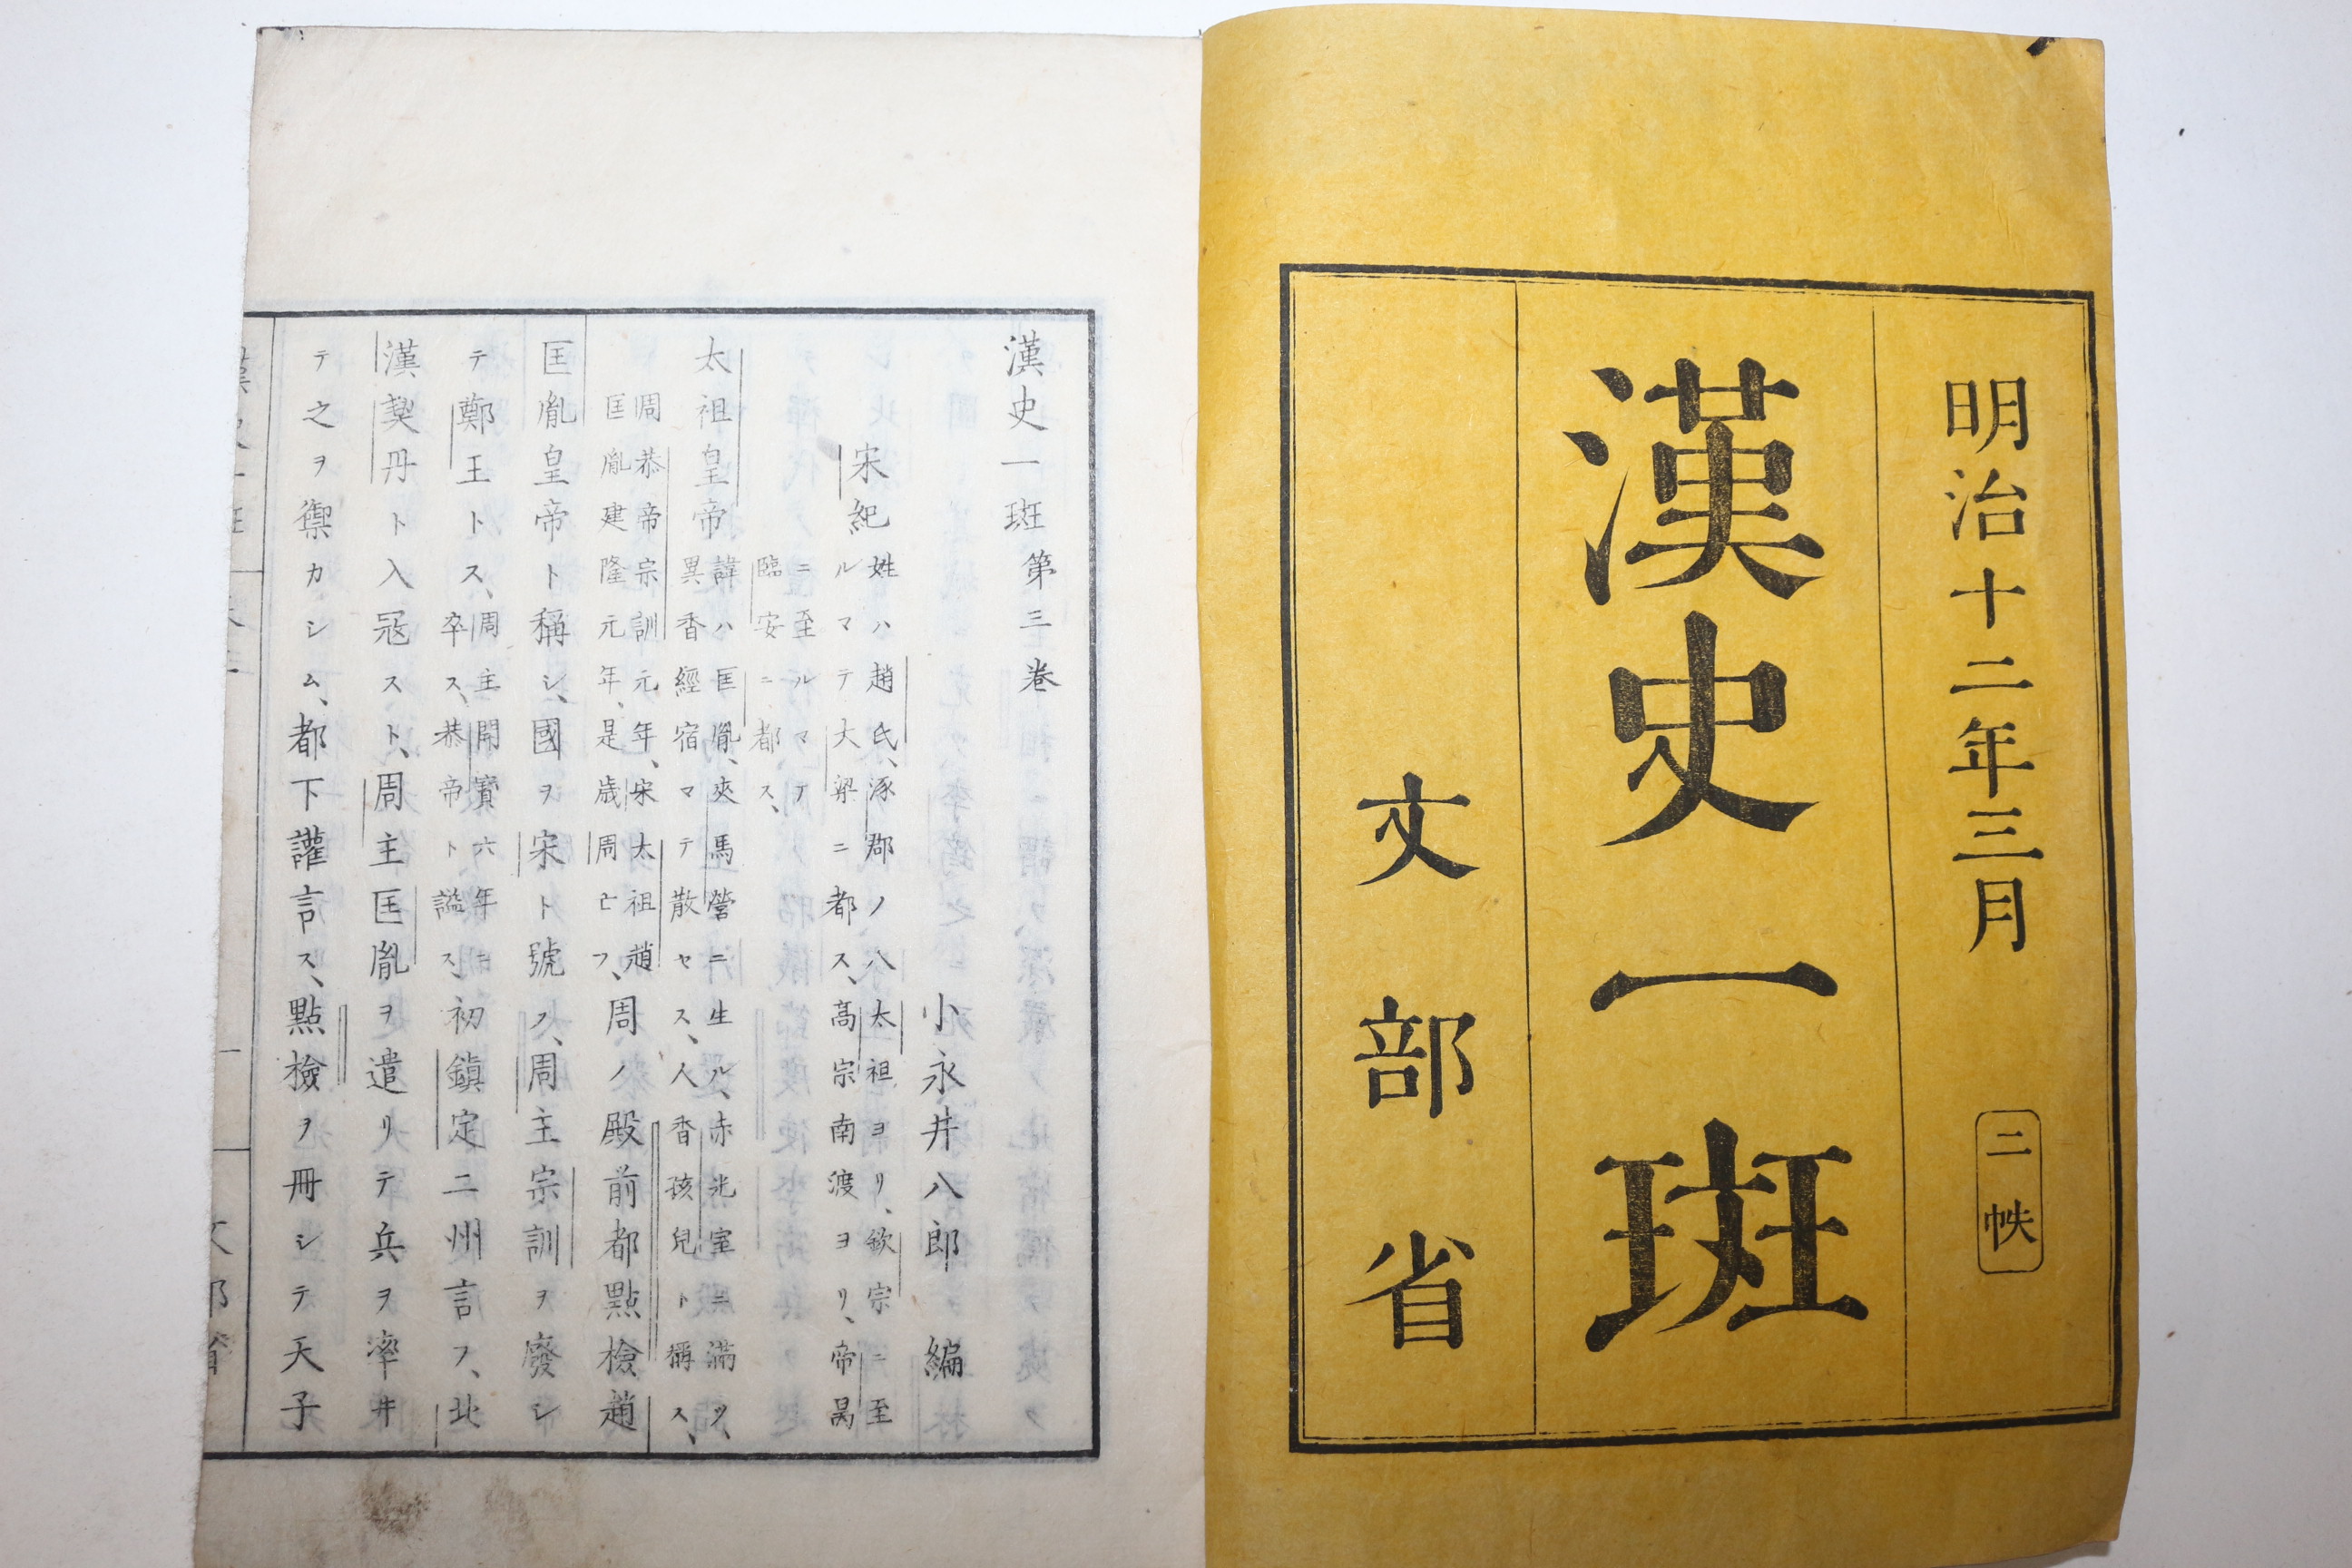 明治十二年三月
二帙
漢史一班
文部省
漢史一班第三卷
小永井八郎編
宋紀
姓ハ趙氏、涿郡ノ人太祖ヨリ、欽宗ニ至
ルマテ大梁ニ都ス、高宗南渡ヨリ、帝昺
ニ至ルマテ
臨安ニ都ス、
太祖皇帝
諱ハ匡胤、夾馬營ニ生ル、赤光室ニ滿ツ、
異香經宿マテ散セス、人香孩兒ト稱ス、
周恭帝宗訓元年、宋太祖趙
匡胤建隆元年、是歳周亡フ、
周ノ殿前都點檢趙
匡胤皇帝ト稱シ、國ヲ宋ト號ス、周主宗訓ヲ廢シ
テ鄭王トス、
周主開寶六年ニ
卒ス、恭帝ト謚ス、
初鎭定二州言フ、北
漢契丹ト入冦スト、周主匡胤ヲ遣リテ兵ヲ率井
テ之ヲ禦カシム、都下讙言ス、點檢ヲ冊シテ天子